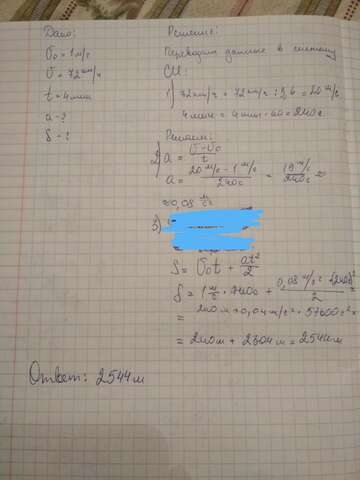 Дано:
υ₀ = 1 м/с
υ = 72 км/ч
t = 4 мин
a - ?
S - ?
Решение:
Переводим данные в систему
СИ:
1) 72 км/ч = 72 км/ч : 3,6 = 20 м/с
4 мин = 4 мин · 60 = 240с
Решаем:
2) a = (υ - υ₀)/t
a = (20 м/с - 1 м/с)/240с = 19 м/с / 240 с ≈
≈ 0,08 м/с²
3)
S = υ₀t + at²/2
S = 1 м/с · 240с + 0,08 м/с² · (240с)²/2 =
= 240м + 0,04 м/с² · 57600 с² =
= 240м + 2304 м = 2544м
Ответ: 2544 м